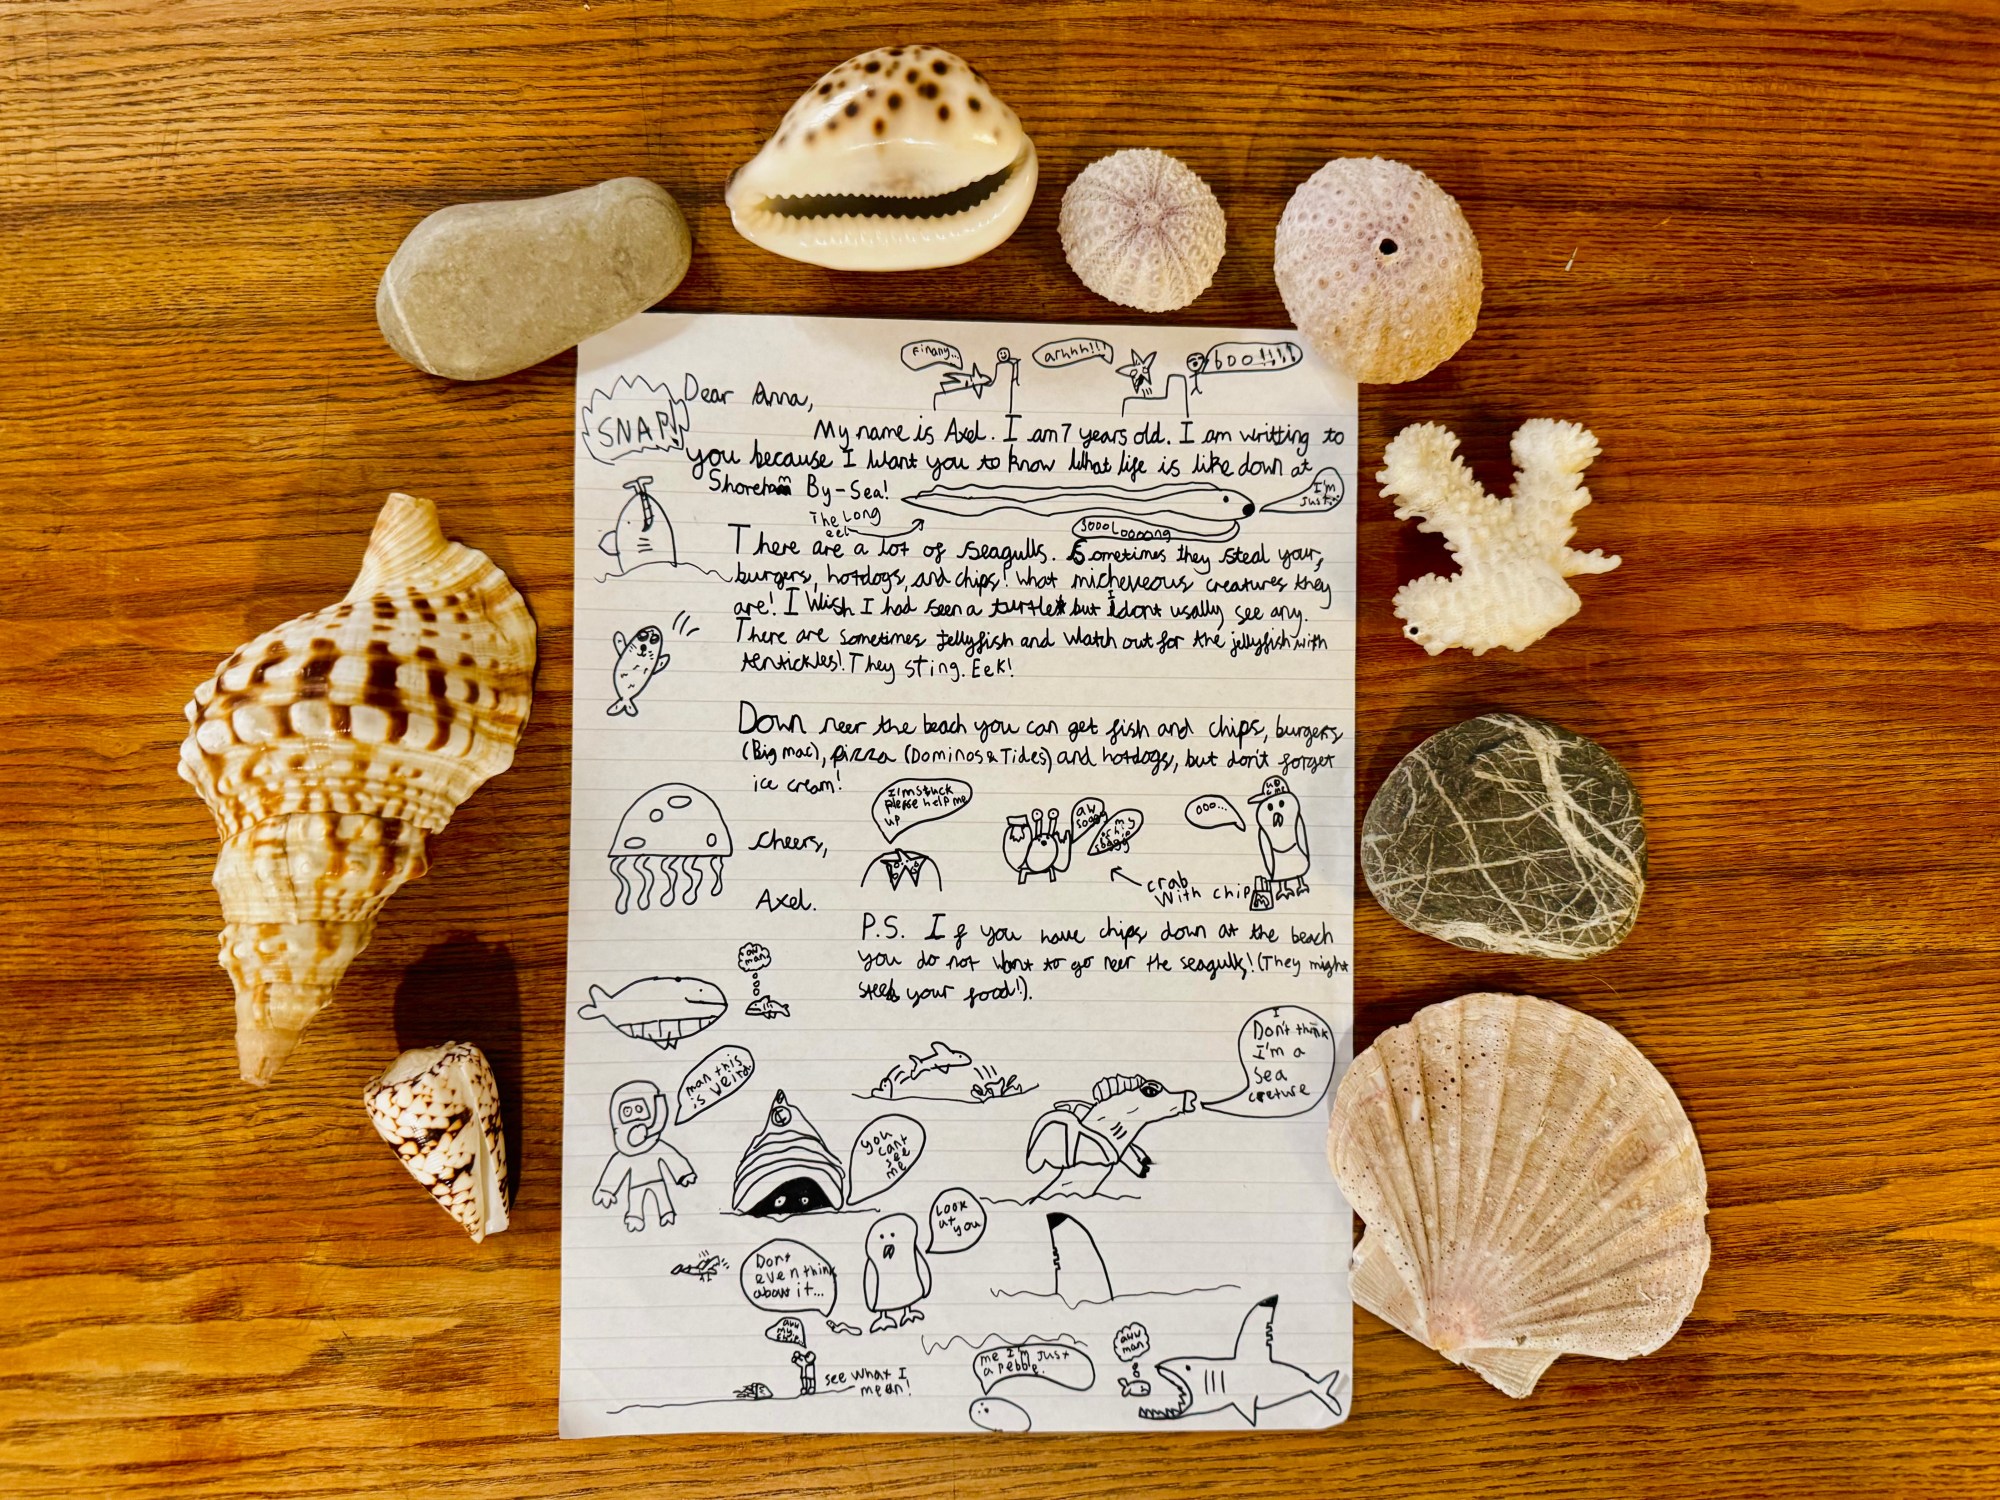 Finany...
arhhh!!!
boo!!!!!
Dear Anna,
SNAP!
My name is Axel. I am 7 years old. I am writting to
you because I want you to know What life is like down at
Shoreham By-Sea!
I'm
just...
The Long
eel
soooLoooong
There are a lot of seagulls. Sometimes they steal your,
burgers, hotdogs, and chips! What micheveous creatures they
are! I Wish I had seen a turtle but I dont usally see any.
There are sometimes Jellyfish and Watch out for the jellyfish with
tentickles! They sting. Eek!
Down neer the beach you can get fish and chips, burgers
(Big mac), pizza (Dominos & Tides) and hotdogs, but don't forget
ice cream!
I'm stuck
please help me
up
aw
soggy
ooo...
crab
With chip
M
Cheers,
Axel.
P.S. If you have chips down at the beach
you do not want to go neer the seagulls! (They might
your food!).
aw
man
man this
is weird
I
Don't think
I'm a
sea
creture
you
cant
see
me
Look
at
you
Dont
even think
about it...
aww
my
see what I
mean!
me I'm Just
a pebble.
aww
man